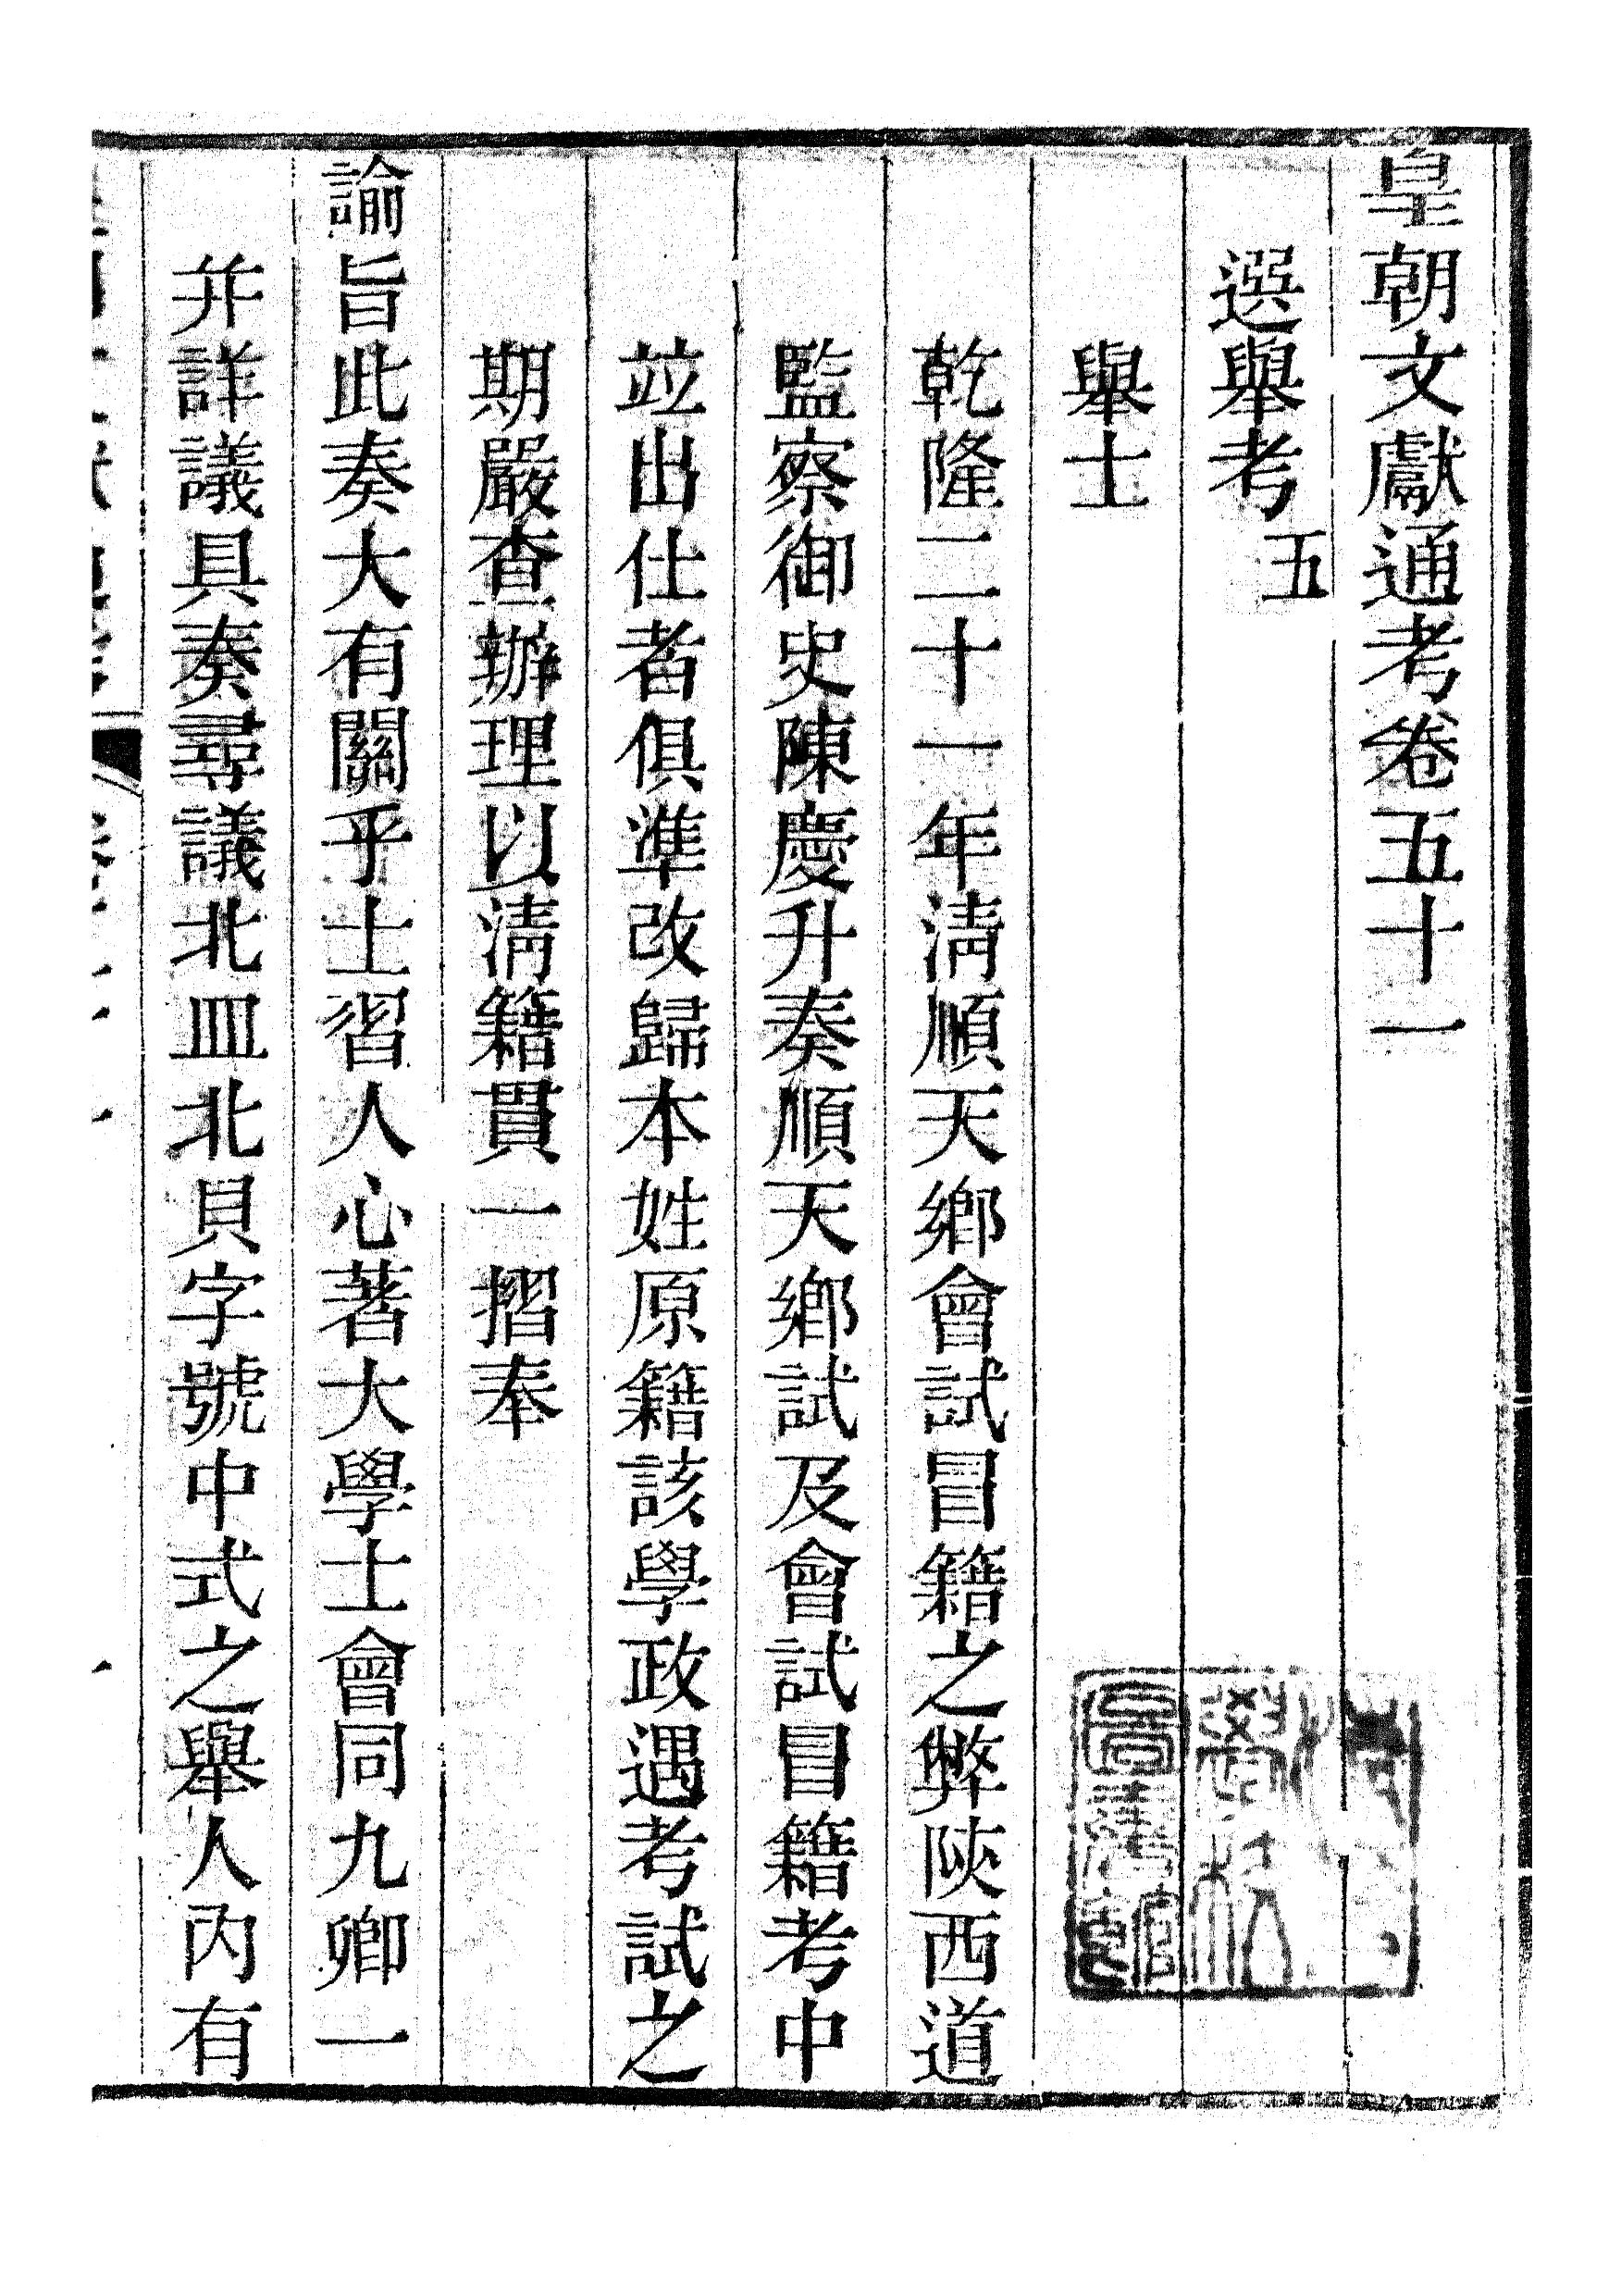 皇朝文獻通考卷五十一
選舉考五
舉士
乾隆二十一年淸順天鄉會試冒籍之弊陝西道
監察御史陳慶升奏順天鄉試及會試冒籍考中
並出仕者俱準改歸本姓原籍該學政遇考試之
期嚴查辦理以淸籍貫一摺奉
諭旨此奏大有關乎士習人心著大學士會同九卿一
并詳議具奏尋議北皿北貝字號中式之舉人內有